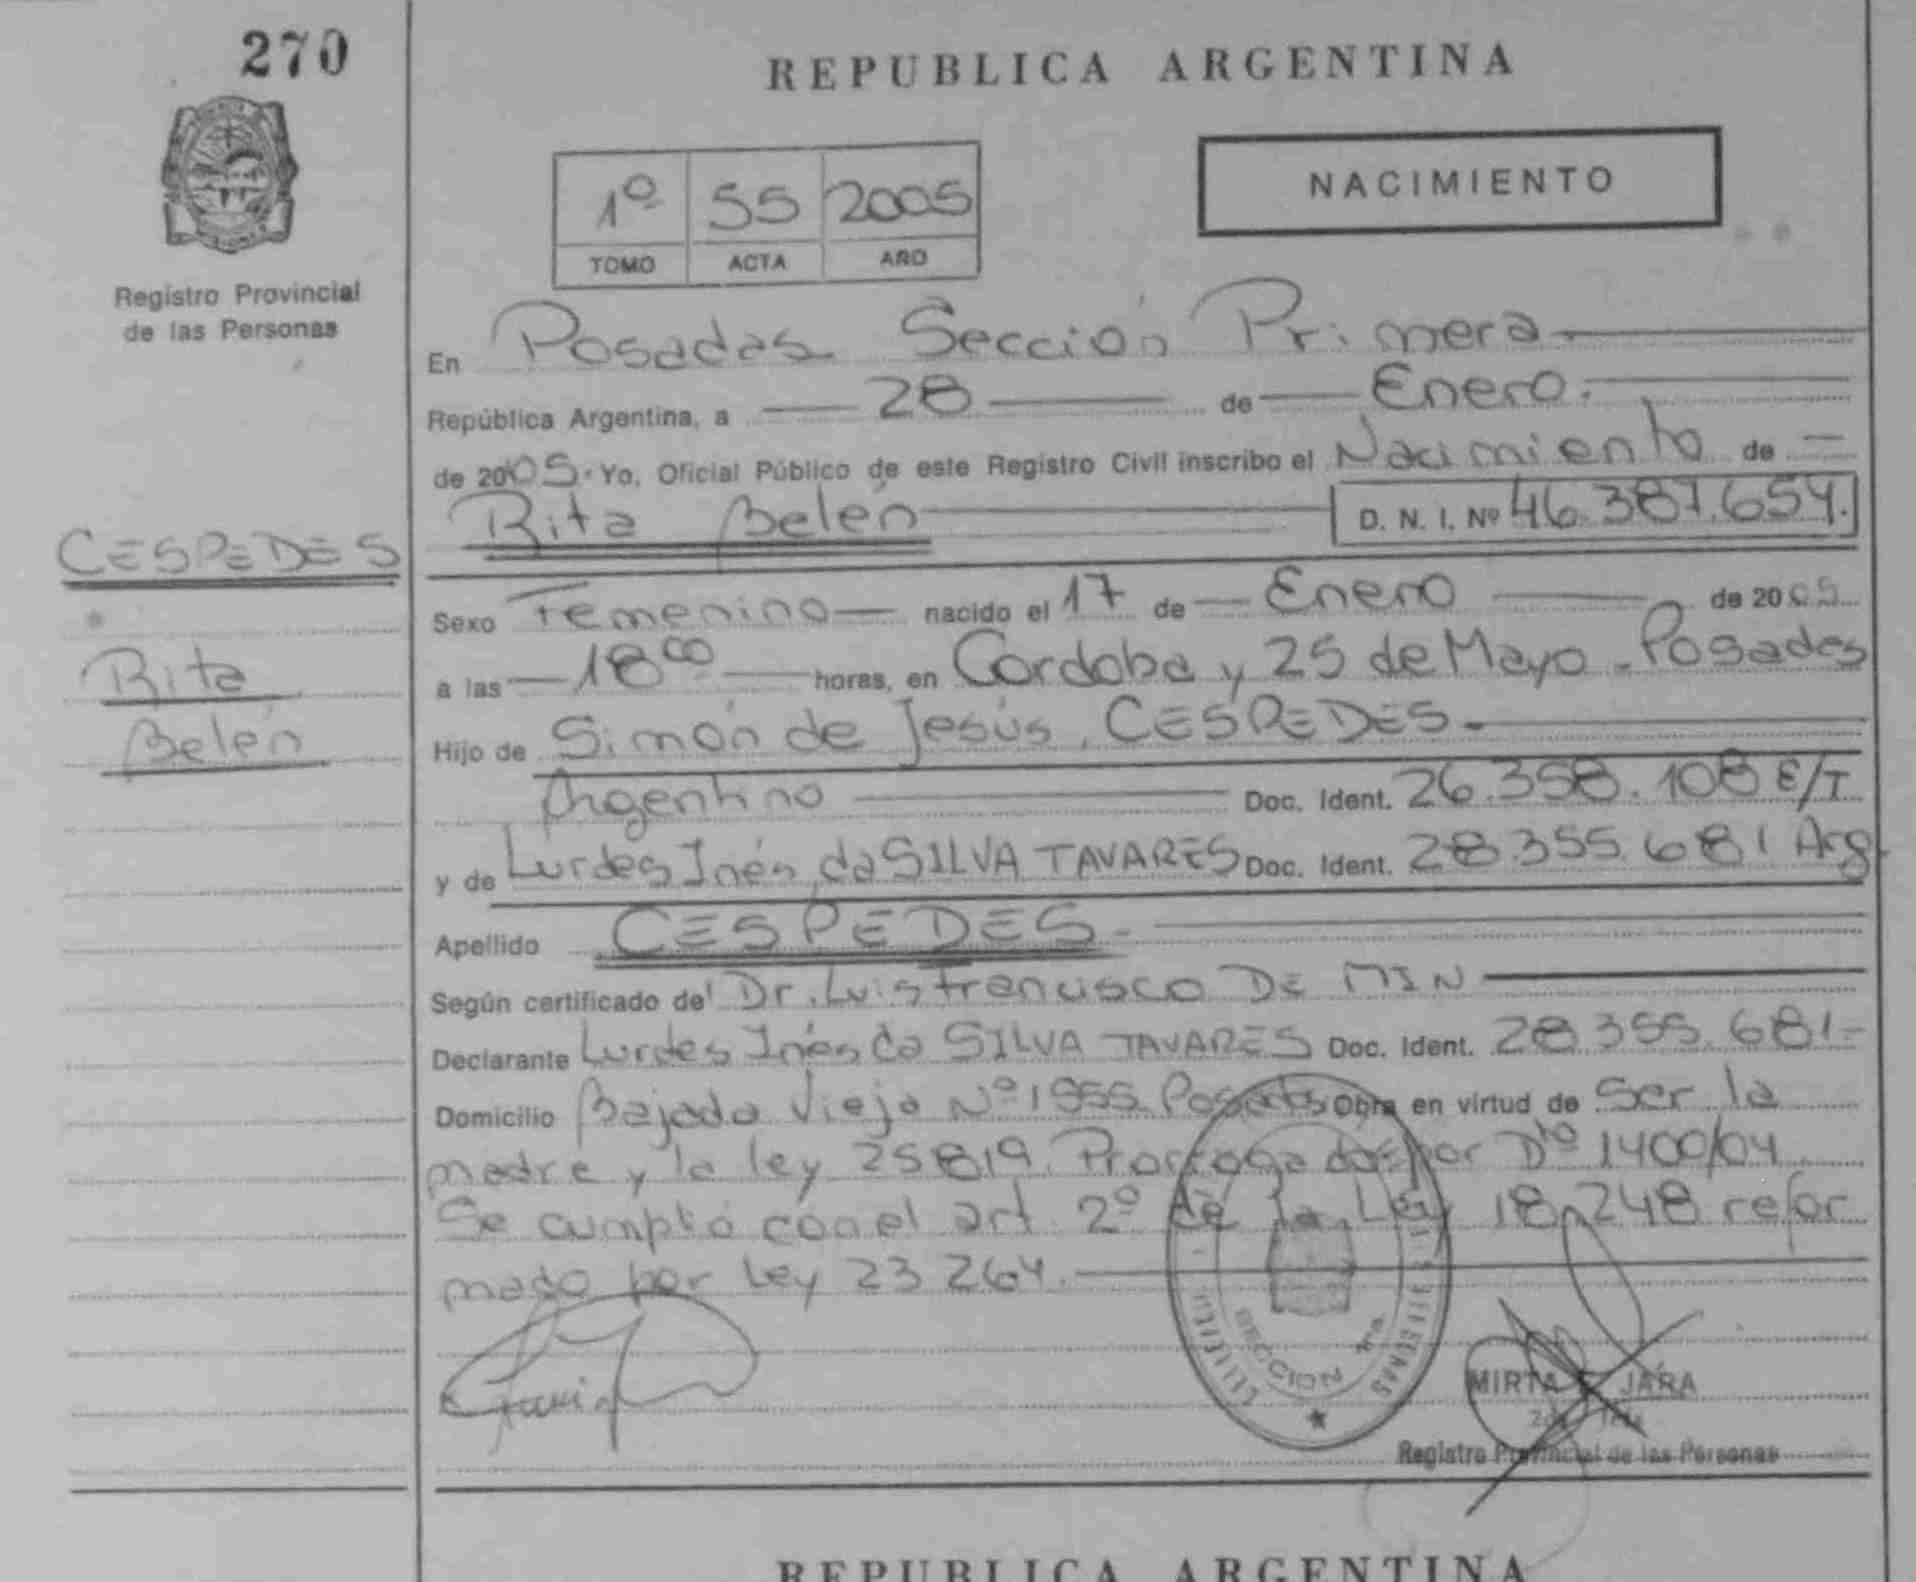 270
REPUBLICA ARGENTINA
NACIMIENTO
1º 55 2005
TOMO ACTA AÑO
Registro Provincial
de las Personas
En Posadas Sección Primera
República Argentina, a 28 de Enero.
de 2005. Yo, Oficial Público de este Registro Civil inscribo el Nacimiento de
Rita Belén D. N. I. Nº 46.387.654.
CESPEDES
Rita
Belén
Sexo Femenino nacido el 17 de Enero de 2005
a las 18 00 horas, en Cordoba y 25 de Mayo - Posadas
Hijo de Simón de Jesús, CESPEDES.
Argentino Doc. Ident. 26.358.108 E/T
y de Lurdes Inés, da SILVA TAVARES Doc. Ident. 28.355.681 Arg.
Apellido CESPEDES.
Según certificado del Dr. Luis Francisco DE MIN
Declarante Lurdes Inés da SILVA TAVARES Doc. Ident. 28.355.681-
Domicilio Bajada Vieja Nº 1555 Posadas Obra en virtud de Ser la
madre y la ley 25819. Prorrogado por Dto 1400/04.
Se cumplió con el art. 2º de la Ley 18.248 refor
mado por Ley 23264.
SECCION 1ra.
MIRTA JARA
Registro Provincial de las Personas
REPUBLICA ARGENTINA